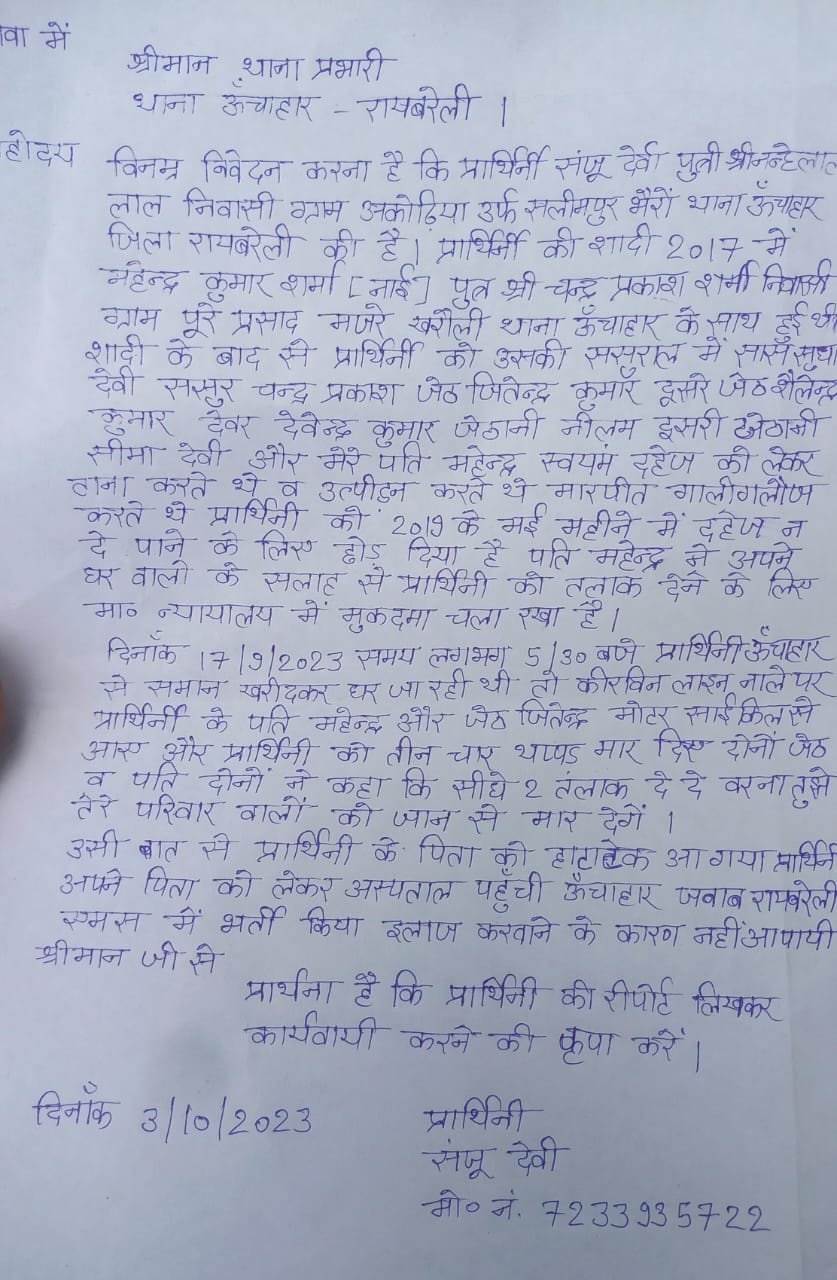 वा में
श्रीमान थाना प्रभारी
थाना ऊँचाहार - रायबरेली ।
होदय विनम्र निवेदन करना है कि प्रार्थिनी संजू देवी पुत्री श्री नन्हेलाल
लाल निवासी ग्राम अकोढ़िया उर्फ सलीमपुर भैरों थाना ऊँचाहार
जिला रायबरेली की है। प्रार्थिनी की शादी 2017 में
महेन्द्र कुमार शर्मा [नाई] पुत्र श्री चन्द्र प्रकाश शर्मा निवासी
ग्राम पूरे प्रसाद मजरे खरौली थाना ऊँचाहार के साथ हुई थी
शादी के बाद से प्रार्थिनी को उसकी ससुराल में सास सुधा
देवी ससुर चन्द्र प्रकाश जेठ जितेन्द्र कुमार दूसरे जेठ शैलेन्द्र
कुमार देवर देवेन्द्र कुमार जेठानी नीलम दूसरी जेठानी
सीमा देवी और मेरे पति महेन्द्र स्वयमं दहेज को लेकर
ताना करते थे व उत्पीड़न करते थे मारपीत गालीगलौज
करते थे प्रार्थिनी को 2019 के मई महीने में दहेज न
दे पाने के लिए छोड़ दिया है पति महेन्द्र ने अपने
घर वालो के सलाह से प्रार्थिनी को तलाक देने के लिए
मा० न्यायालय में मुकदमा चला रखा है।
दिनाँक 17/9/2023 समय लगभग 5/30 बजे प्रार्थिनी ऊँचाहार
से समान खरीदकर घर जा रही थी तो कीरविन लाइन नाले पर
प्रार्थिनी के पति महेन्द्र और जेठ जितेन्द्र मोटर साईकिल से
आए और प्रार्थिनी को तीन चार थप्पड मार दिए दोनों जेठ
व पति दोनों ने कहा कि सीधे 2 तंलाक दे दे वरना तुझे
तेरे परिवार वालों को जान से मार देगें ।
उसी बात से प्रार्थिनी के पिता को हाटाटेक आ गया प्रार्थिनी
अपने पिता को लेकर अस्पताल पहुँची ऊँचाहार जवाब रायबरेली
एमस में भर्ती किया इलाज करवाने के कारण नहीं आ पायी
श्रीमान जी से
प्रार्थना है कि प्रार्थिनी की रीपोर्ट लिखकर
कार्यवायी करने की कृपा करें।
दिनाँक 3/10/2023
प्रार्थिनी
संजू देवी
मो० नं. 7233935722